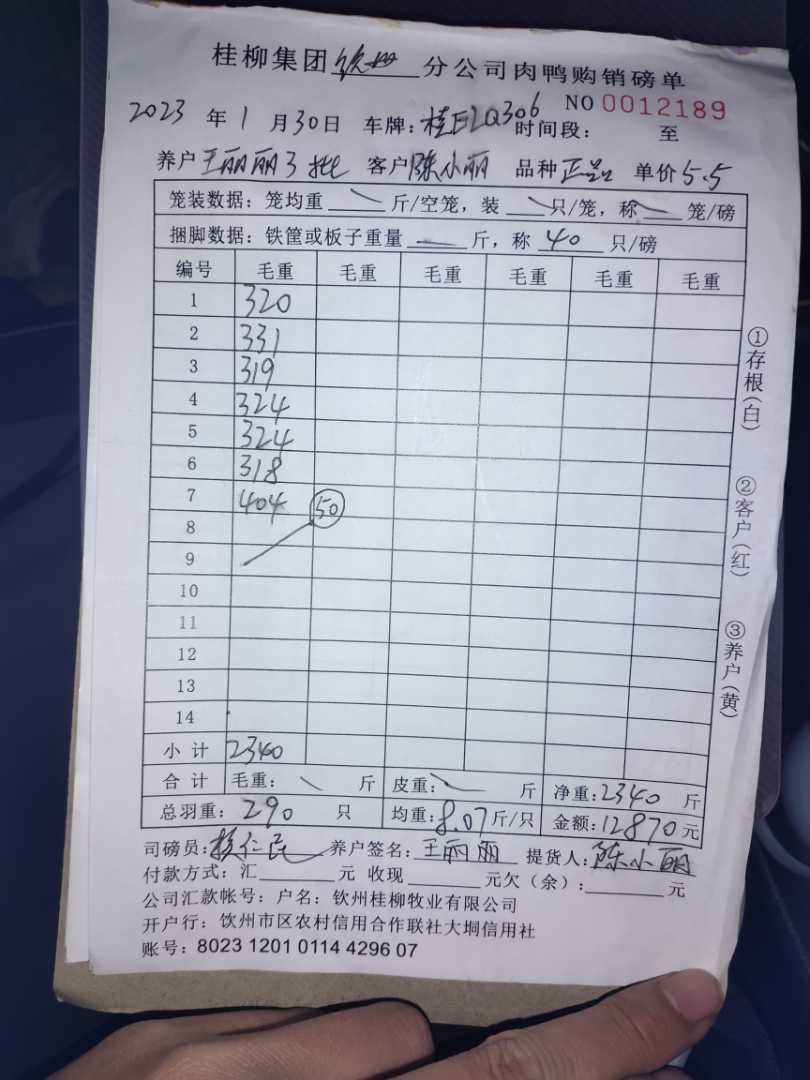 桂柳集团钦州分公司肉鸭购销磅单
NO 0012189
2023 年 1 月 30 日 车牌：桂E2Q306 时间段： 至
养户 王丽丽3批 客户 陈小丽 品种 正品 单价 5.5
笼装数据：笼均重 斤/空笼，装 只/笼，称 笼/磅
捆脚数据：铁筐或板子重量 斤，称 40 只/磅
编号 毛重 毛重 毛重 毛重 毛重 毛重
1 320
2 331
3 319
4 324
5 324
6 318
7 404 50
8
9
10
11
12
13
14
小 计 2340
合 计 毛重： 斤 皮重： 斤 净重：2340 斤
总羽重：290 只 均重：8.07 斤/只 金额：12870 元
司磅员： 仁民 养户签名：王丽丽 提货人：陈小丽
付款方式：汇 元 收现 元欠（余）： 元
公司汇款帐号：户名：钦州桂柳牧业有限公司
开户行：饮州市区农村信用合作联社大垌信用社
账号：8023 1201 0114 4296 07
①存根（白）
②客户（红）
③养户（黄）